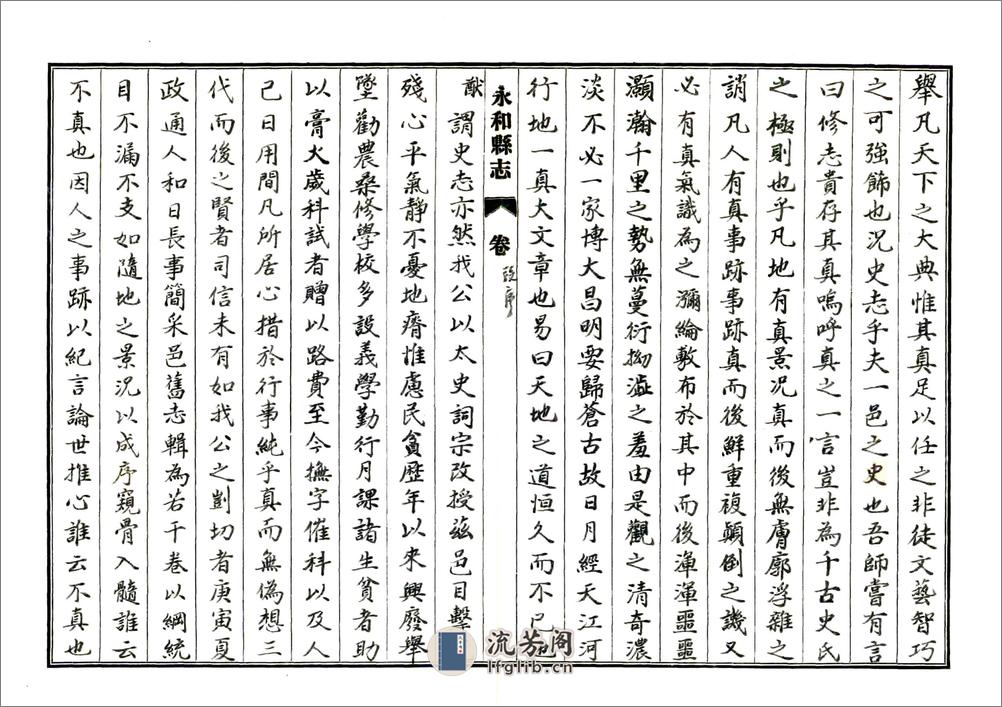 舉凡天下之大典惟其真足以任之非徒文藝智巧
之可強飾也況史志乎夫一邑之史也吾師嘗有言
曰修志貴存其真嗚呼真之一言豈非為千古史氏
之極則也乎凡地有真景況真而後無膚廓浮雜之
誚凡人有真事跡事跡真而後鮮重複顛倒之譏又
必有真氣識為之瀰綸敷布於其中而後渾渾噩噩
灝瀚千里之勢無蔓衍拗澁之羞由是觀之清奇濃
淡不必一家博大昌明要歸蒼古故日月經天江河
行地一真大文章也易曰天地之道恒久而不已也
永和縣志
卷
跋序
猷謂史志亦然我公以太史詞宗改授茲邑目擊
殘心平氣靜不憂地瘠惟慮民貧歷年以來興廢舉
墜勸農桑修學校多設義學勤行月課諸生貧者助
以膏火歲科試者贈以路費至今撫字催科以及人
己日用間凡所居心措於行事純乎真而無偽想三
代而後之賢者司信未有如我公之剴切者庚寅夏
政通人和日長事簡采邑舊志輯為若干卷以綱統
目不漏不支如隨地之景況以成序窺骨入髓誰云
不真也因人之事跡以紀言論世推心誰云不真也
流芳阁
lfglib.cn